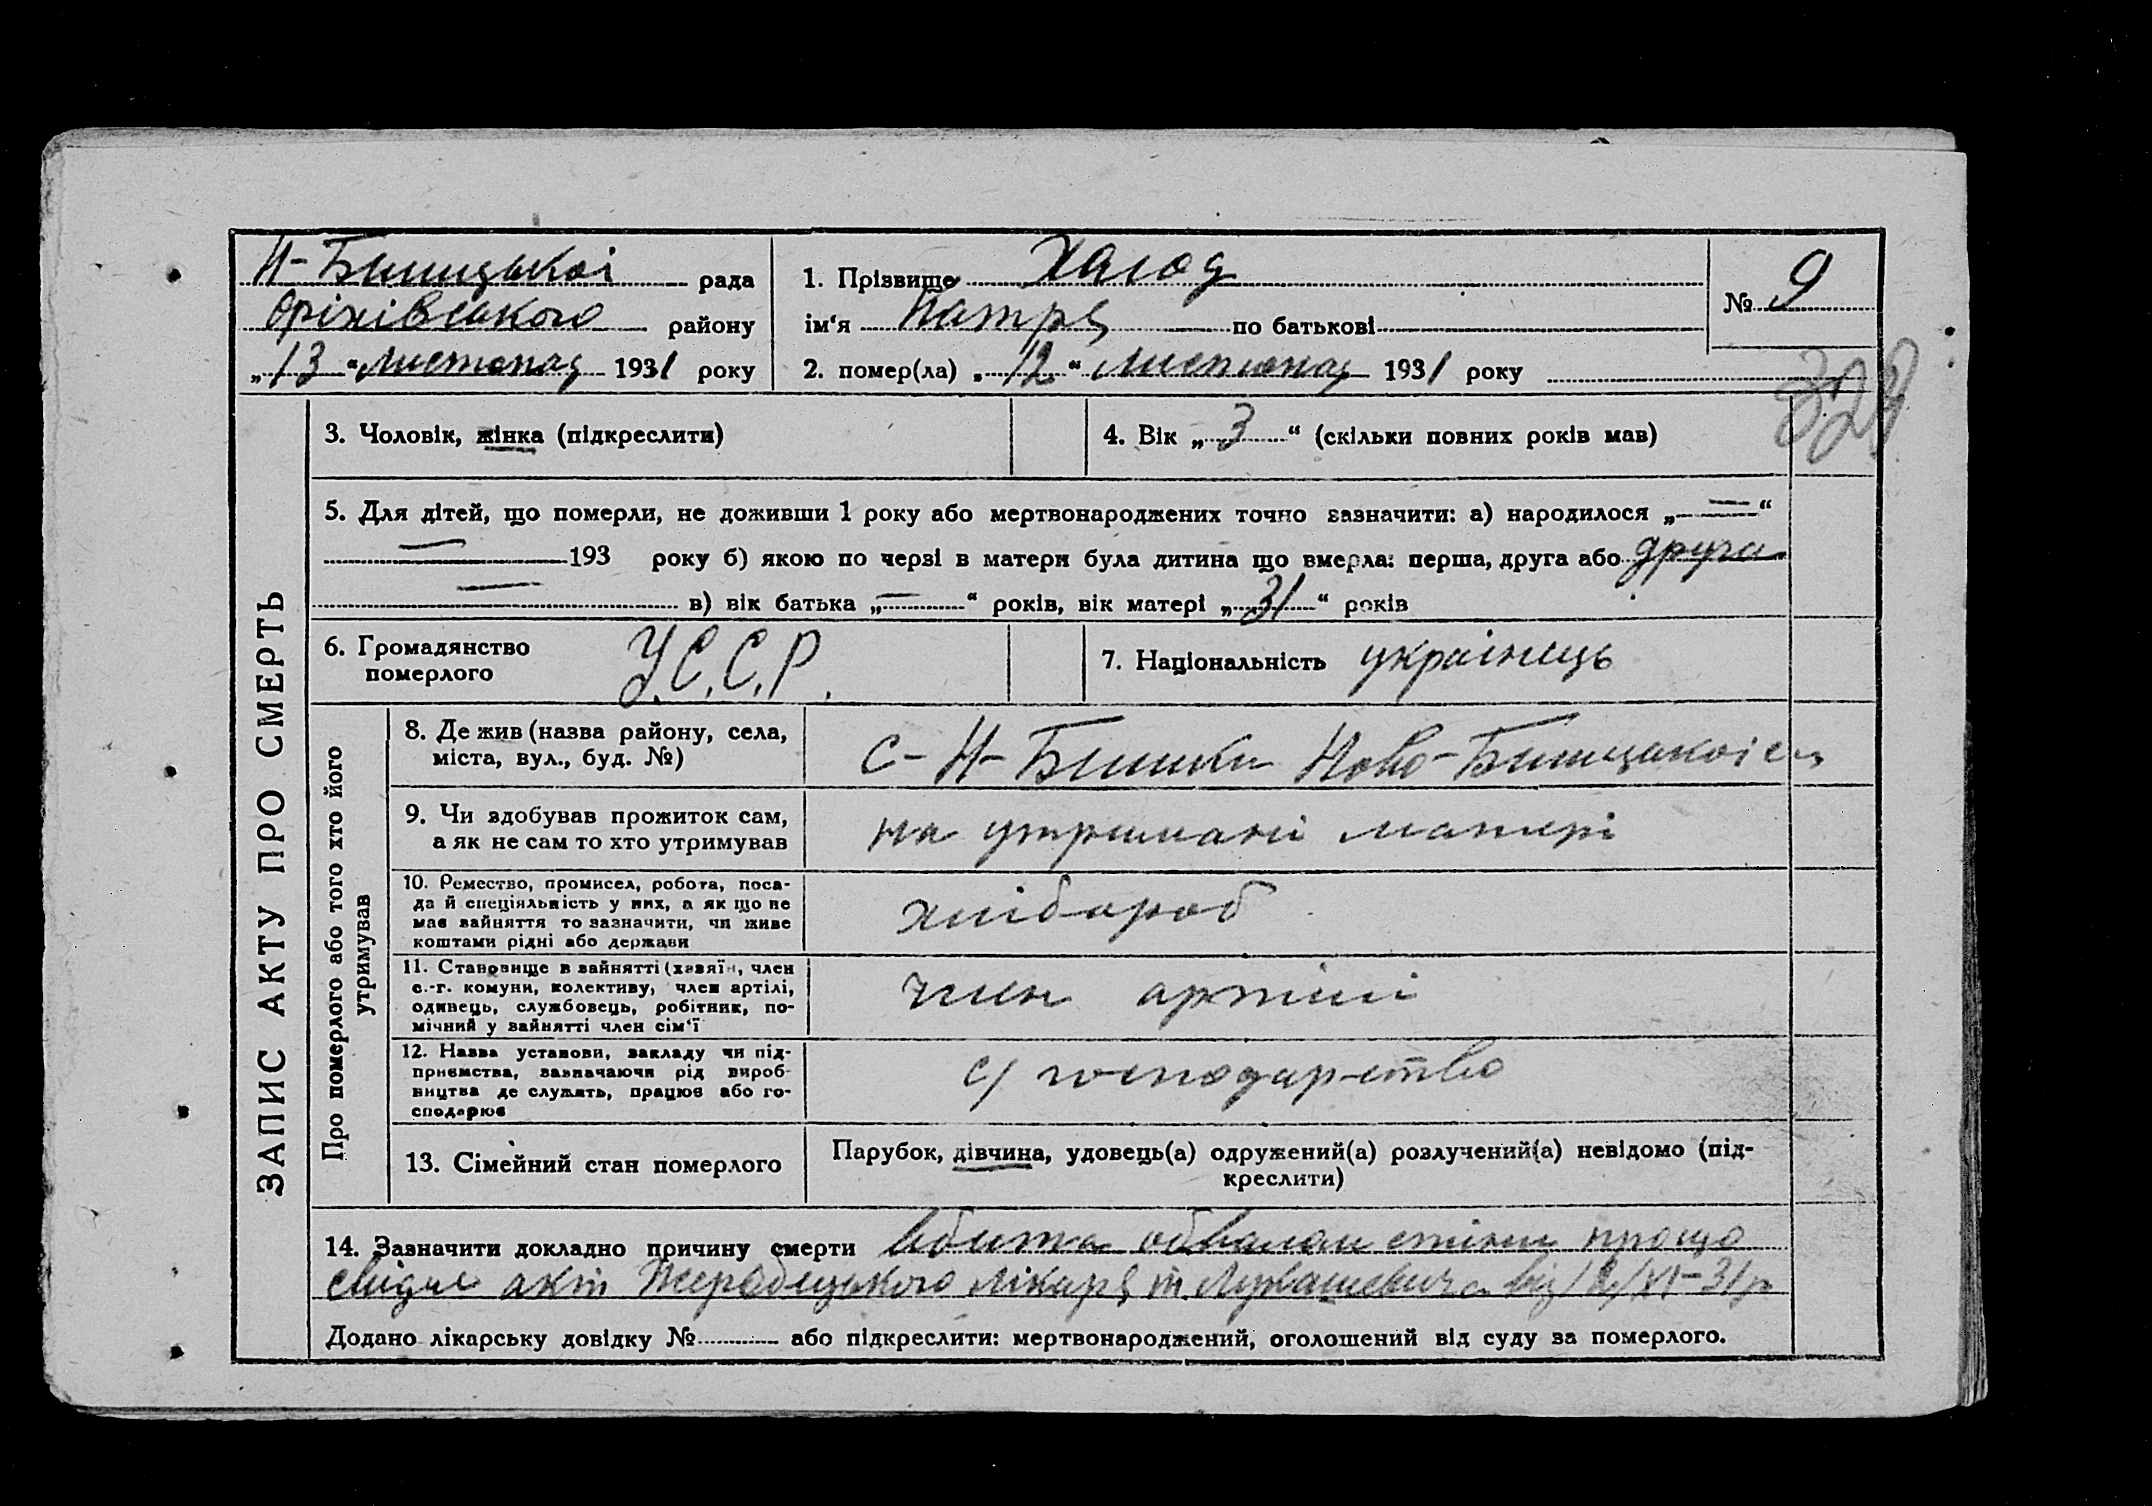 Н-Бишцької рада
Оріхівського району
„13“ листопад 1931 року
1. Прізвище Халод
ім'я Патря по батькові
2. помер(ла) „12“ листопад 1931 року
№ 9
329
ЗАПИС АКТУ ПРО СМЕРТЬ
3. Чоловік, жінка (підкреслити)
4. Вік „3“ (скільки повних років мав)
5. Для дітей, що померли, не доживши 1 року або мертвонароджених точно зазначити: а) народилося „—“
— 193 року б) якою по черзі в матери була дитина що вмерла: перша, друга або друга
— в) вік батька „—“ років, вік матері „31“ років
6. Громадянство
померлого
У.С.С.Р.
7. Національність українець
Про померлого або того хто його
утримував
8. Де жив (назва району, села,
міста, вул., буд. №)
с-Н-Бишки Ново-Бишцької
9. Чи здобував прожиток сам,
а як не сам то хто утримував
на утримані матері
10. Ремество, промисел, робота, поса-
да й спеціяльність у них, а як що не
має зайняття то зазначити, чи живе
коштами рідні або держави
хлібороб
11. Становище в зайнятті (хазяїн, член
с.-г. комуни, колективу, член артілі,
одинець, службовець, робітник, по-
мічний у зайнятті член сім'ї
член артілі
12. Назва установи, закладу чи під-
приємства, зазначаючи рід вироб-
ництва де служить, працює або го-
сподарює
с/господарство
13. Сімейний стан померлого
Парубок, дівчина, удовець(а) одружений(а) розлучений(а) невідомо (під-
креслити)
14. Зазначити докладно причину смерти вбита обвалом стіни про що
свідче акт Жеребецького лікаря т. Лукашевича від 12/XI-31р
Додано лікарську довідку № або підкреслити: мертвонароджений, оголошений від суду за померлого.